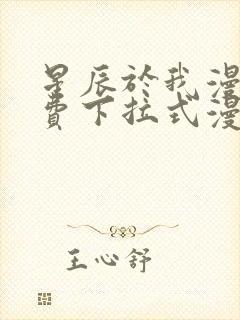 星辰於我漫
費下拉式漫
王心舒